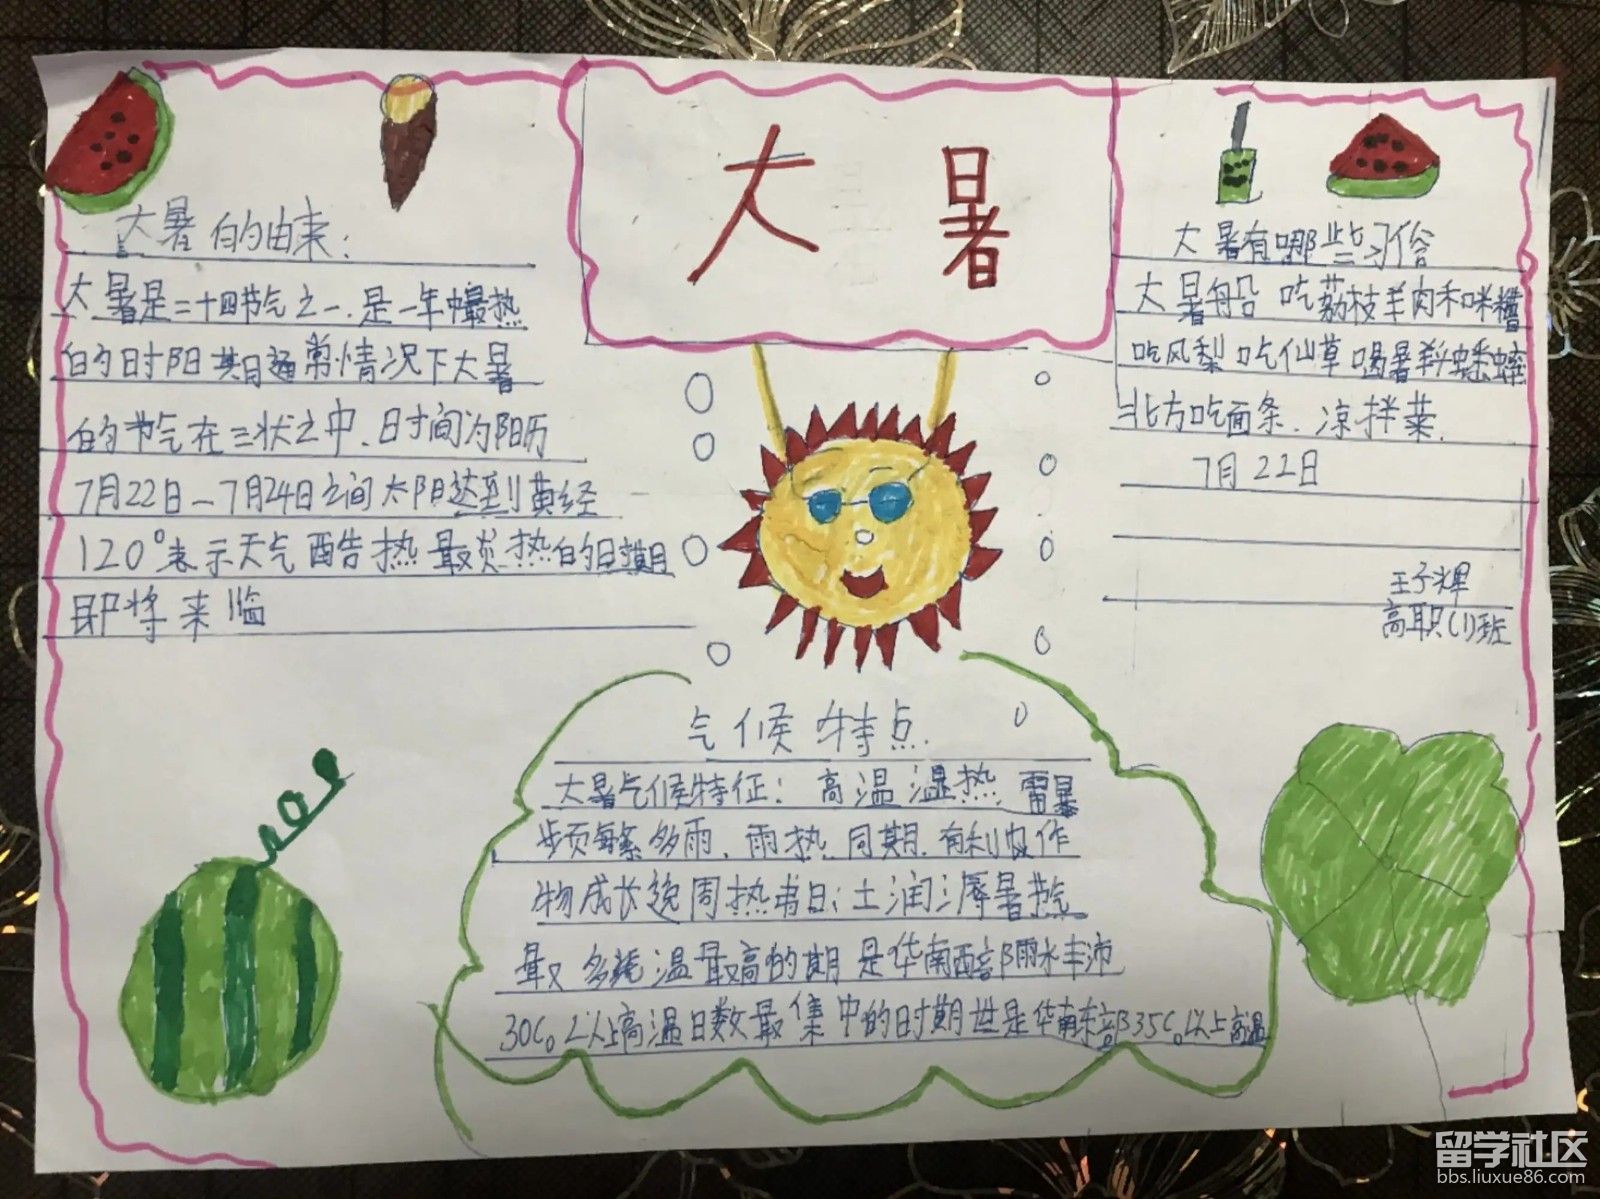 大暑
大暑的由来:
大暑是二十四节气之一.是一年中最热
的时阳期通常情况下大暑
的节气在三伏之中.时间为阳历
7月22日—7月24日之间太阳达到黄经
120°表示天气酷热最炎热的时期
即将来临
大暑有哪些习俗
大暑船 吃荔枝羊肉和咪糟
吃凤梨 吃仙草 喝暑羊 蟋蟀
北方吃面条.凉拌菜.
7月22日
王子辉
高职(1)班
气候特点.
大暑气候特征:高温湿热 雷暴
频繁多雨.雨热同期.有利农作
物成长 周热 日;土润溽暑 气
最多 温最高的期是华南西部雨水丰沛
30C。以上高温日数最集中的时期 世是华南东部35C。以上高温
留学社区
bbs.liuxue86.com